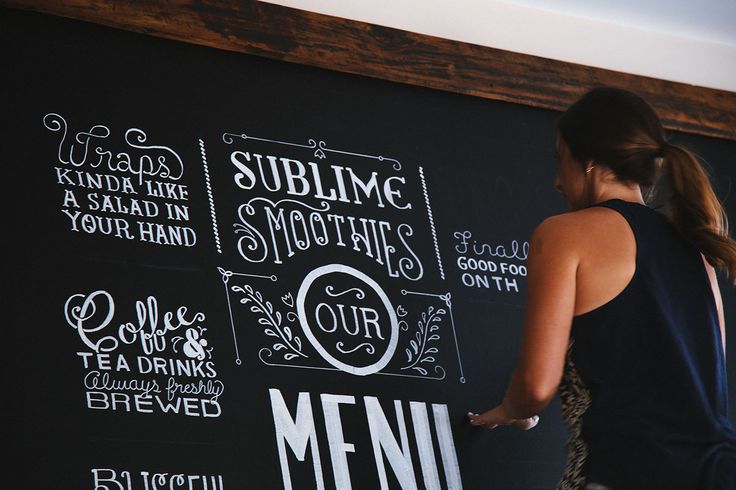 Wraps
KINDA LIKE
A SALAD IN
YOUR HAND
SUBLIME
SMOOTHIES
OUR
MENU
Coffee &
TEA DRINKS
Always freshly
BREWED
Finall
GOOD FOO
ON TH